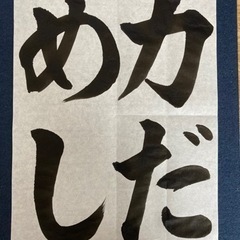 力だ
めし